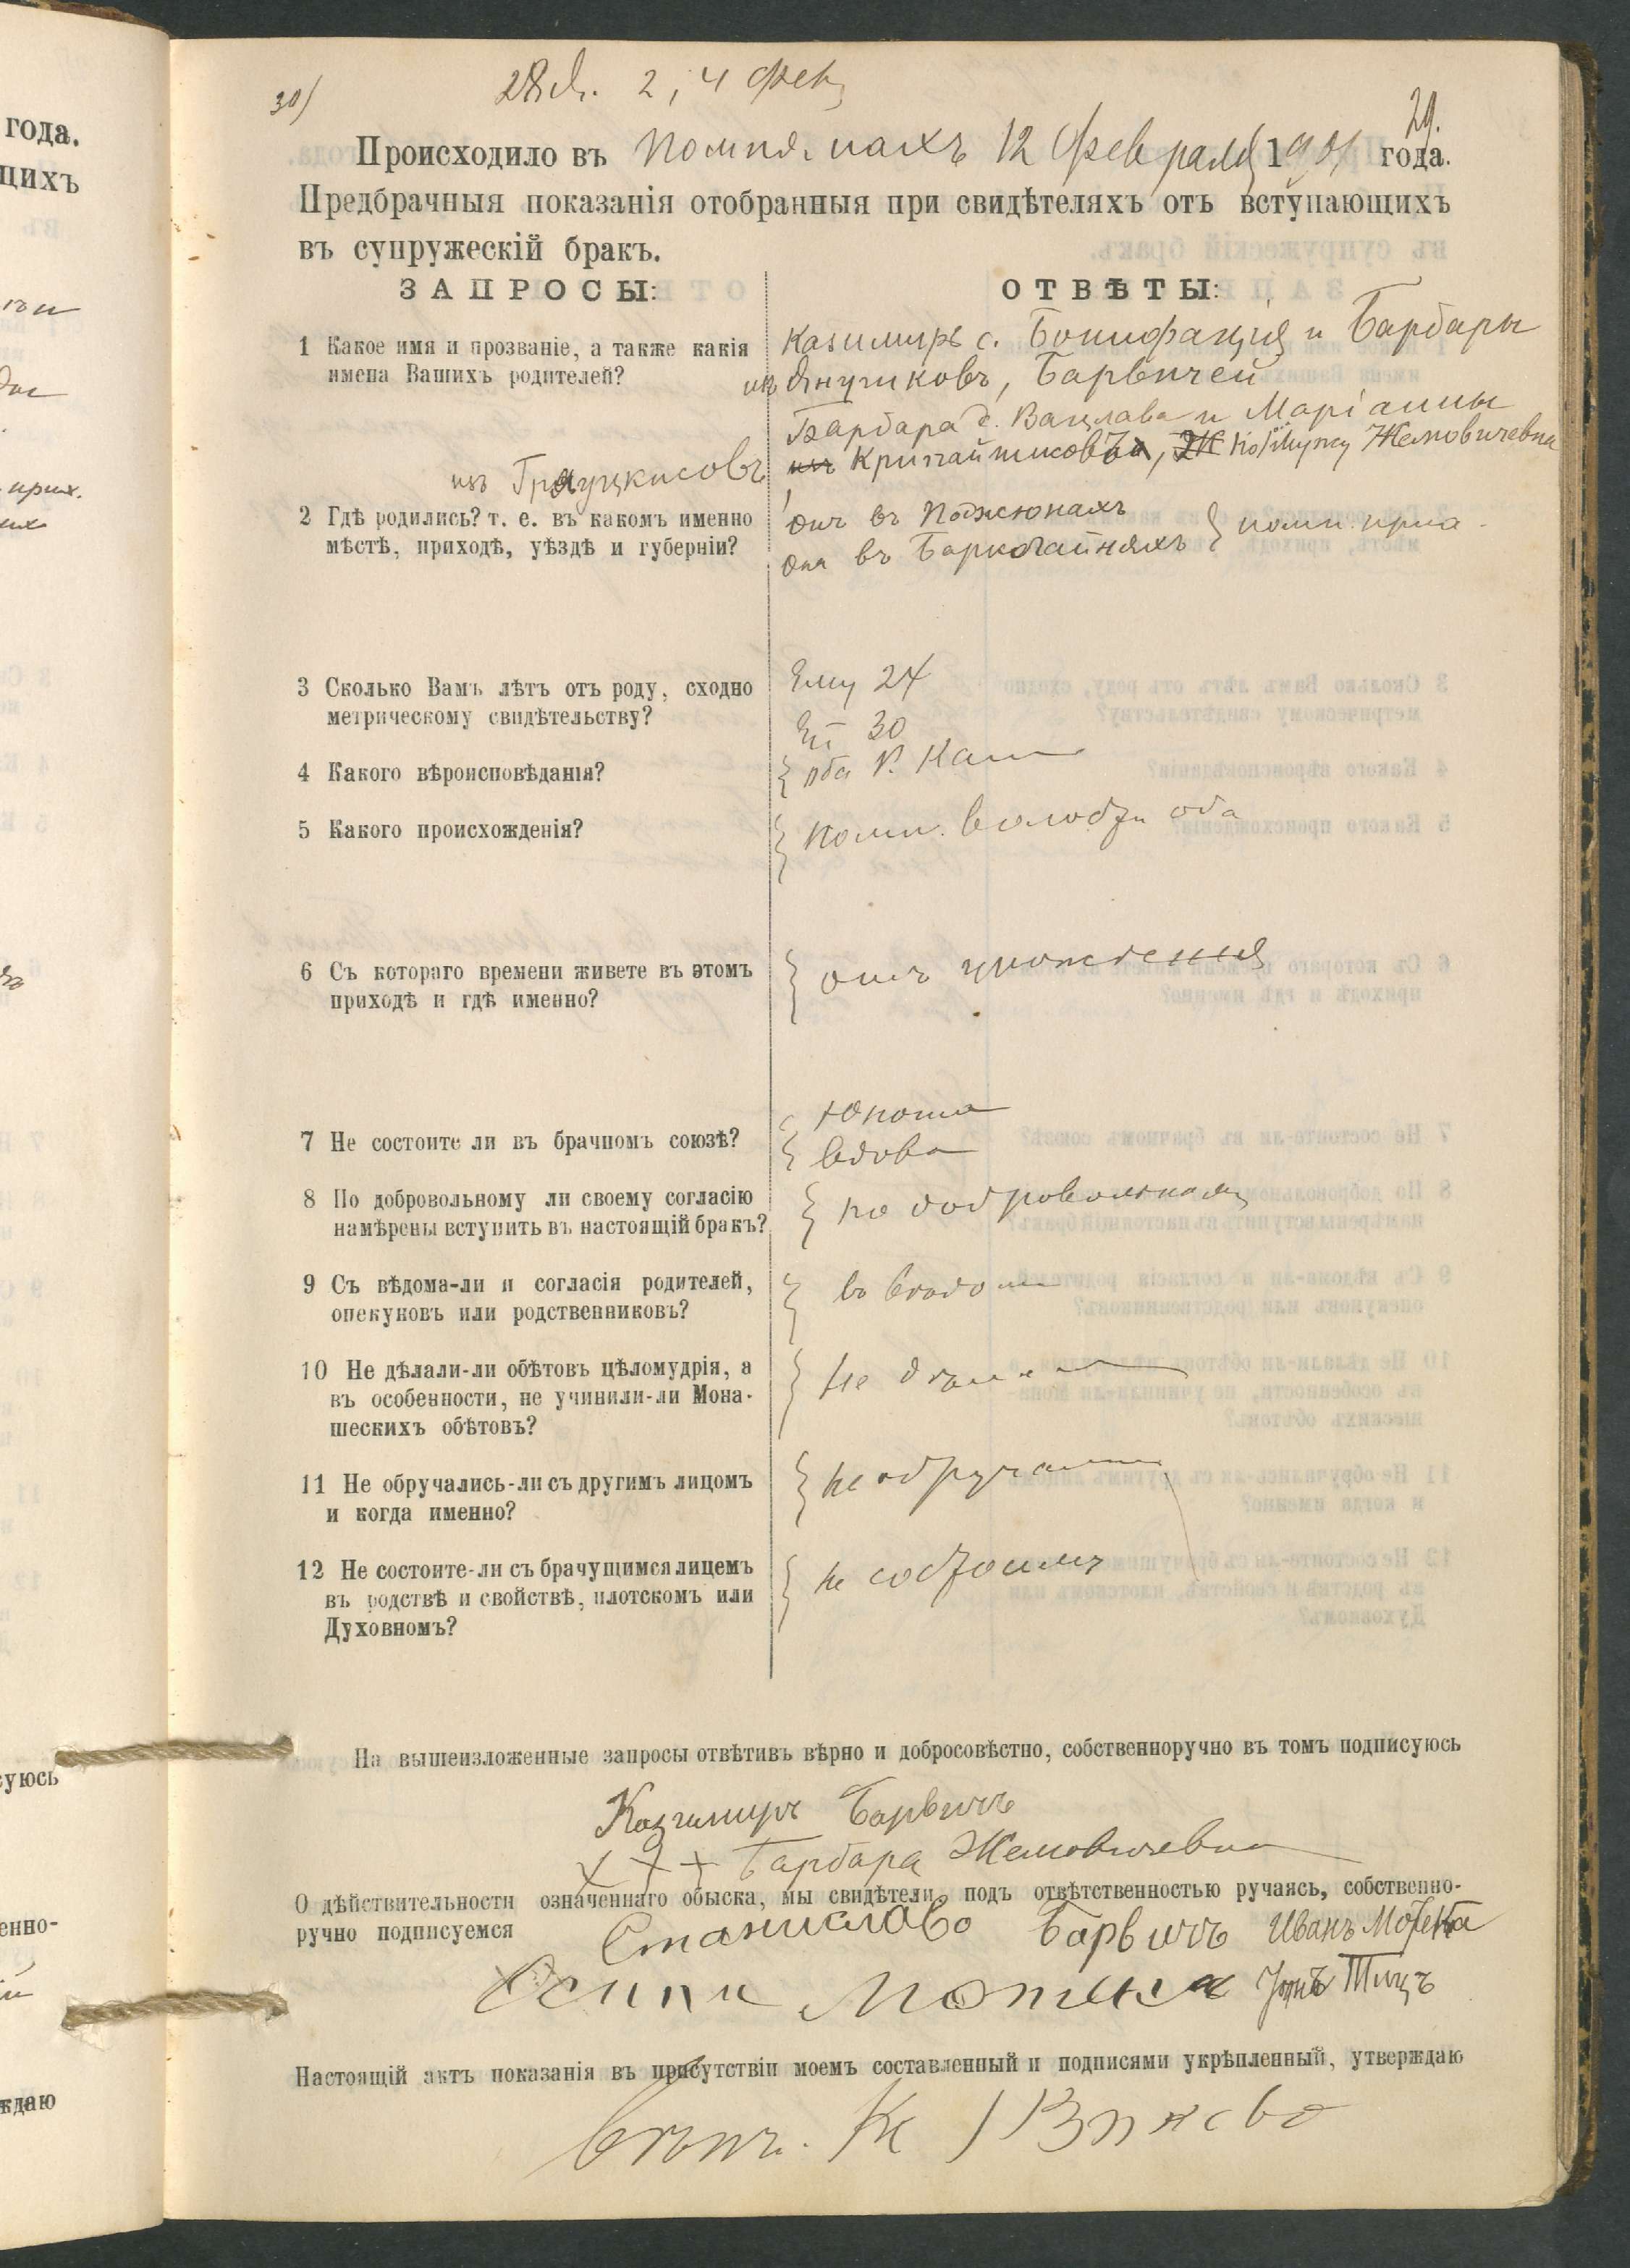 года.
щихъ
30)
28 Я. 2, 4 Фев
29.
Происходило въ Помпянахъ 12 Февраля 1901 года.
Предбрачныя показанія отобранныя при свидѣтеляхъ отъ вступающихъ
въ супружескій бракъ.
ЗАПРОСЫ:
ОТВѢТЫ:
1 Какое имя и прозваніе, а также какія
имена Вашихъ родителей?
Казимиръ с. Бонифація и Барбары
изъ Янушковъ, Барвичей
Барбара д. Вацлава и Маріанны
по мужу Жемовичевна
изъ
2 Гдѣ родились? т. е. въ какомъ именно
мѣстѣ, приходѣ, уѣздѣ и губерніи?
Онъ въ
Она въ
3 Сколько Вамъ лѣтъ отъ роду, сходно
метрическому свидѣтельству?
Ему 24
Ей 30
4 Какого вѣроисповѣданія?
оба Р. Кат
5 Какого происхожденія?
Помп. волости оба
6 Съ котораго времени живете въ этомъ
приходѣ и гдѣ именно?
отъ урожденія
7 Не состоите ли въ брачномъ союзѣ?
Юноша
вдова
8 По добровольному ли своему согласію
намѣрены вступить въ настоящій бракъ?
по добровольному
9 Съ вѣдома-ли и согласія родителей,
опекуновъ или родственниковъ?
10 Не дѣлали-ли обѣтовъ цѣломудрія, а
въ особенности, не учинили-ли Мона-
шескихъ обѣтовъ?
не дѣлали
11 Не обручались-ли съ другимъ лицомъ
и когда именно?
не обручались
12 Не состоите-ли съ брачущимся лицемъ
въ родствѣ и свойствѣ, плотскомъ или
Духовномъ?
не состоимъ
На вышеизложенные запросы отвѣтивъ вѣрно и добросовѣстно, собственноручно въ томъ подписуюсь
Казимиръ Барвичъ
+ + + Барбара Жемовичевна
О дѣйствительности означеннаго обыска, мы свидѣтели подъ отвѣтственностью ручаясь, собственно-
ручно подписуемся
Станиславъ Барвичъ Иванъ Мотека
Осипъ Мотека
Настоящій актъ показанія въ присутствіи моемъ составленный и подписями укрѣпленный, утверждаю